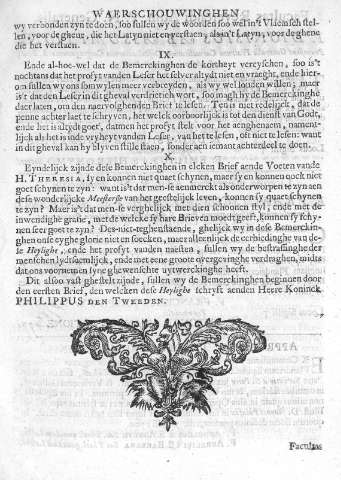 WAERSCHOUWINGHEN.
wy verbonden zyn te doen, soo sullen wy de woorden soo wel in't Vlaemsch stel-
len, voor de ghene, die het Latyn niet en verstaen, als in't Latyn, voor de ghene
die het verstaen.
IX.
Ende al-hoe-wel dat de Bemerckinghen de kortheyt vereyschen, soo is't
nochtans dat het profyt vanden Leser het selver altydt niet en vraeght, ende hier-
om sullen wy ons somwylen meer verbreyden, als wy wel souden willen; maer
is't dat den Leser in dit gheval verdrietich wort, soo magh hy de Bemerckinghe
daer laten, om den naervolghenden Brief te lesen. Tets is niet redelijck, dat de
penne achter laet te schryven, het welck oorboorlijck is tot den dienst van Godt,
ende het is altydt goet, datmen het profyt stelt voor het aenghenaem, nament-
lijck als het is inde vryheyt vanden Leser, van het te lesen, oft niet te lesen: want
in dit gheval kan hy blyven stille staen, sonder aen iemant achterdeel te doen.
X.
Eyndelijck zijnde dese Bemerckinghen in elcken Brief aende Voeten van de
H. THERESIA, sy en konnen niet quaet schynen, maer sy en konnen oock niet
goet schynen te zyn: want is't dat men-se aenmerckt als onderworpen te zyn aen
dese wonderlijcke Meesterse van het geestelijck leven, konnen sy quaet schynen
te zyn? Maer is't dat men-se verghelijckt met dien schoonen styl, ende met de
inwendighe gratie, met de welcke sy hare Brieven moedt geeft, konnen sy schy-
nen seer goet te zyn? Des-niet-teghenstaende, ghelijck wy in dese Bemerckin-
ghen onse eyghe glorie niet en soecken, maer alleenlijck de eerbiedinghe van de-
se Heylighe, ende het profyt vanden naesten, sullen wy de bestraffinghe der
menschen lydtsaemlijck, ende met eene groote overgevinghe verdraghen, midts
dat ons voornemen syne ghewenschte uytwerckinghe heeft.
Dit alsoo vast ghestelt zijnde, sullen wy de Bemerckinghen beginnen door
den eersten Brief, den welcken dese Heylighe schryft aenden Heere Koninck
PHILIPPUS DEN TWEEDEN.
Facultas